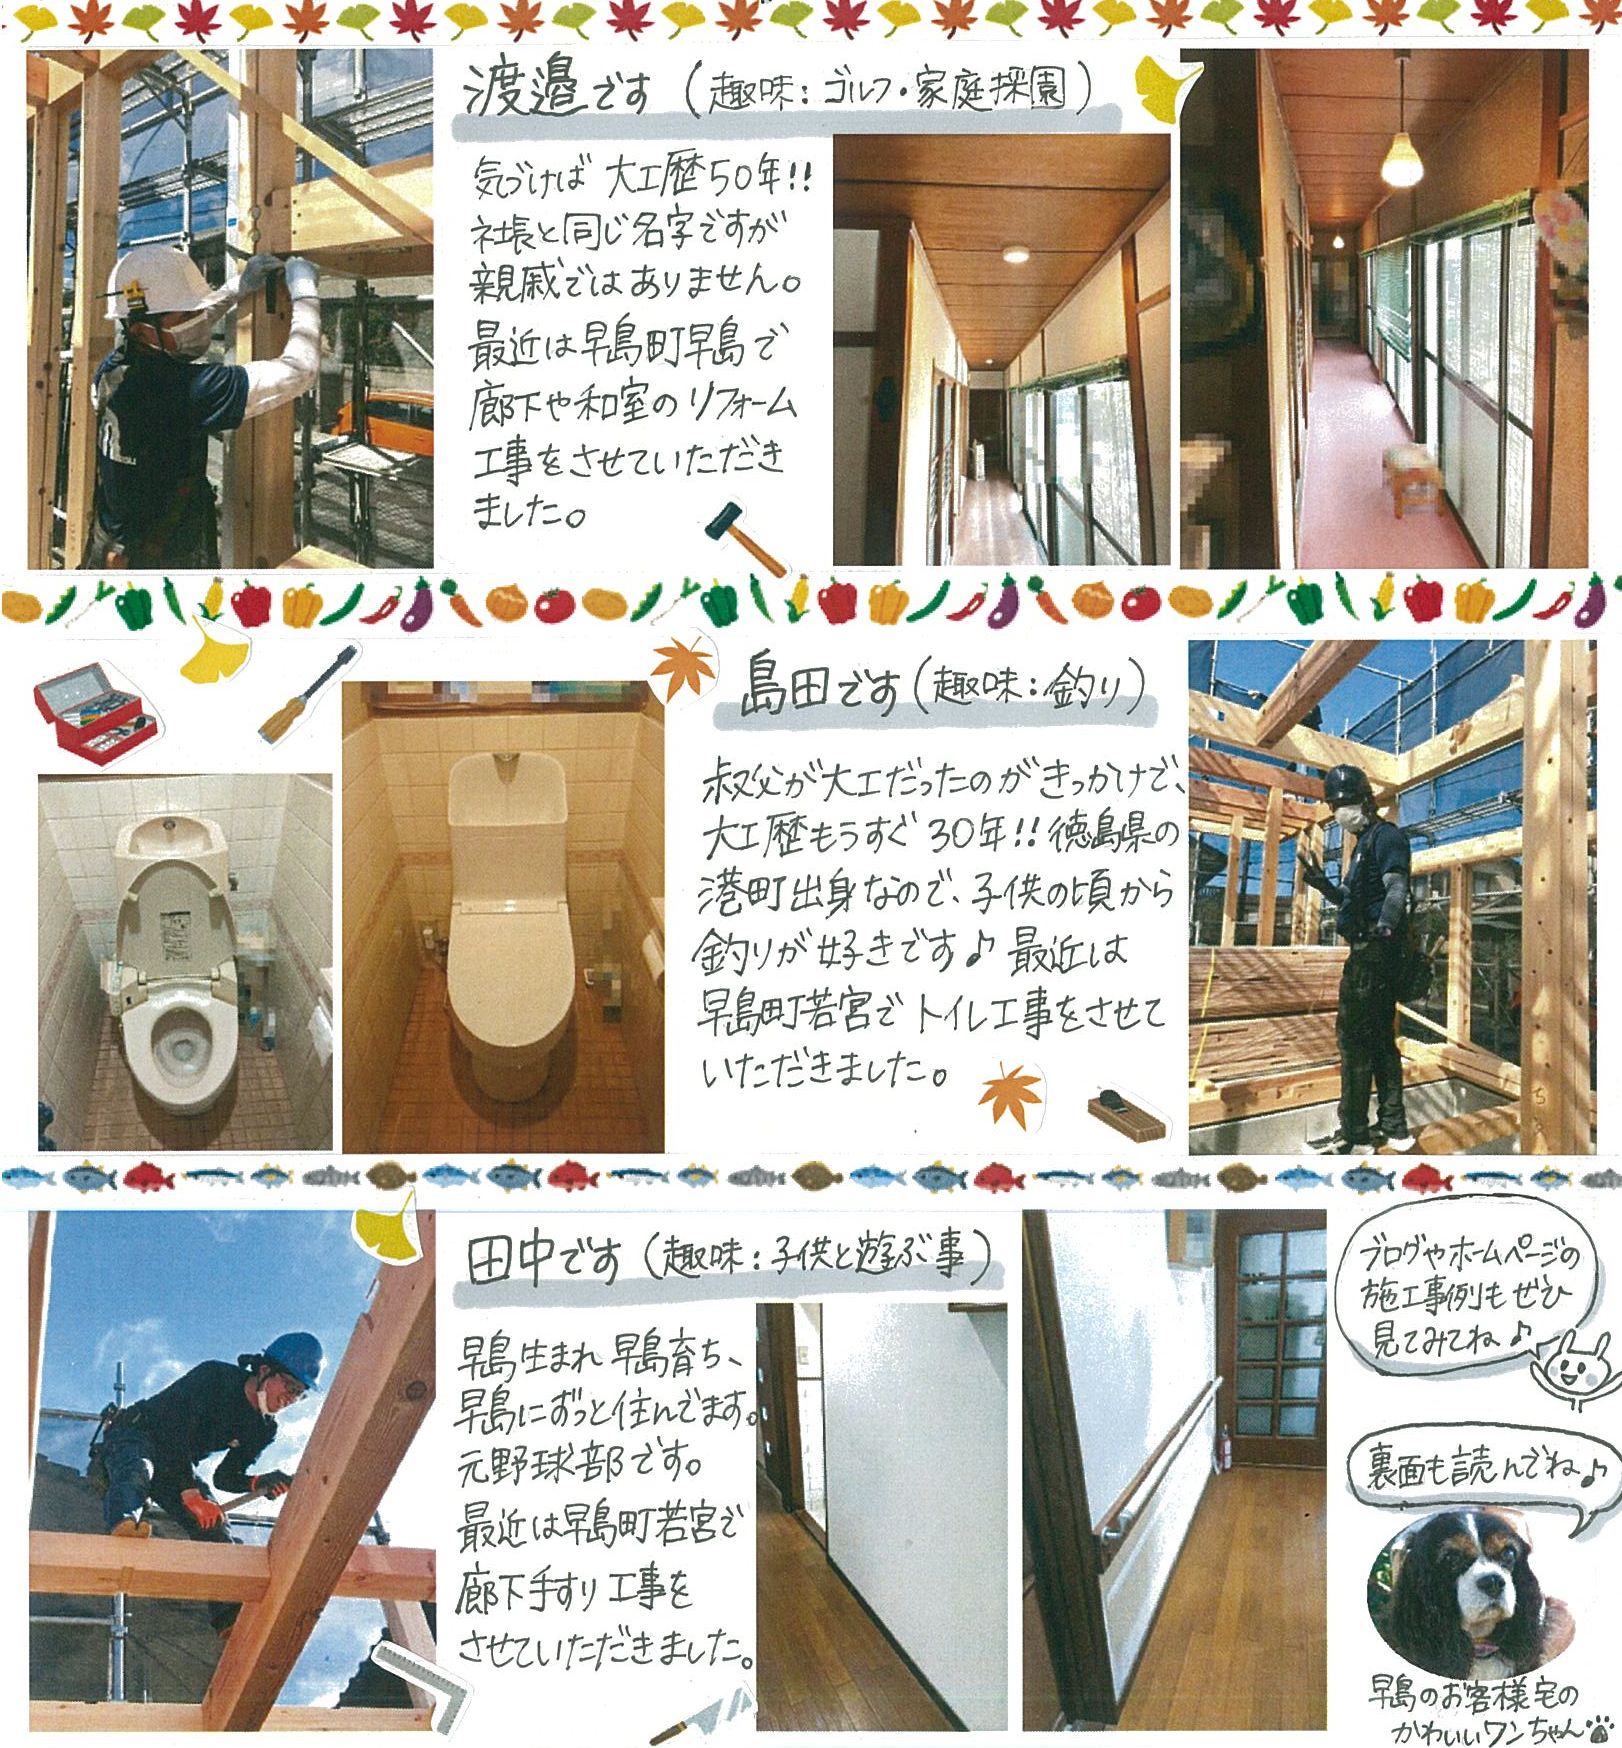 渡邉です (趣味:ゴルフ・家庭採園)
気づけば 大工歴50年!!
社長と同じ名字ですが
親戚ではありません。
最近は早島町早島で
廊下や和室のリフォーム
工事をさせていただき
ました。
島田です(趣味:釣り)
叔父が大工だったのがきっかけで、
大工歴もうすぐ30年!! 徳島県の
港町出身なので、子供の頃から
釣りが好きです♪ 最近は
早島町若宮でトイレ工事をさせて
いただきました。
田中です (趣味:子供と遊ぶ事)
早島生まれ 早島育ち、
早島にずっと住んでます。
元野球部です。
最近は早島町若宮で
廊下手すり工事を
させていただきました。
ブログやホームページの
施工事例もぜひ
見てみてね♪
裏面も読んでね♪
早島のお客様宅の
かわいいワンちゃん